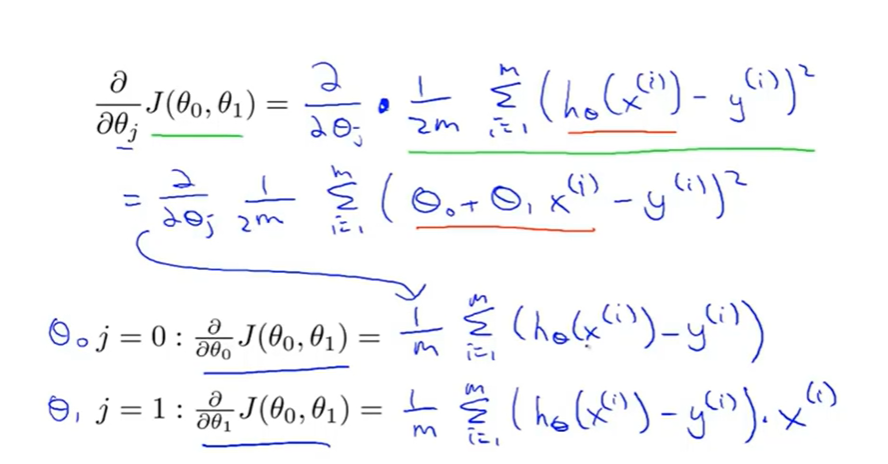 ∂/∂θⱼ J(θ₀, θ₁) = ∂/∂θⱼ · 1/2m Σᵢ₌₁ᵐ (h_θ(x⁽ⁱ⁾) - y⁽ⁱ⁾)²
= ∂/∂θⱼ 1/2m Σᵢ₌₁ᵐ (θ₀ + θ₁ x⁽ⁱ⁾ - y⁽ⁱ⁾)²
θ₀ j = 0 : ∂/∂θ₀ J(θ₀, θ₁) = 1/m Σᵢ₌₁ᵐ (h_θ(x⁽ⁱ⁾) - y⁽ⁱ⁾)
θ₁ j = 1 : ∂/∂θ₁ J(θ₀, θ₁) = 1/m Σᵢ₌₁ᵐ (h_θ(x⁽ⁱ⁾) - y⁽ⁱ⁾) · x⁽ⁱ⁾